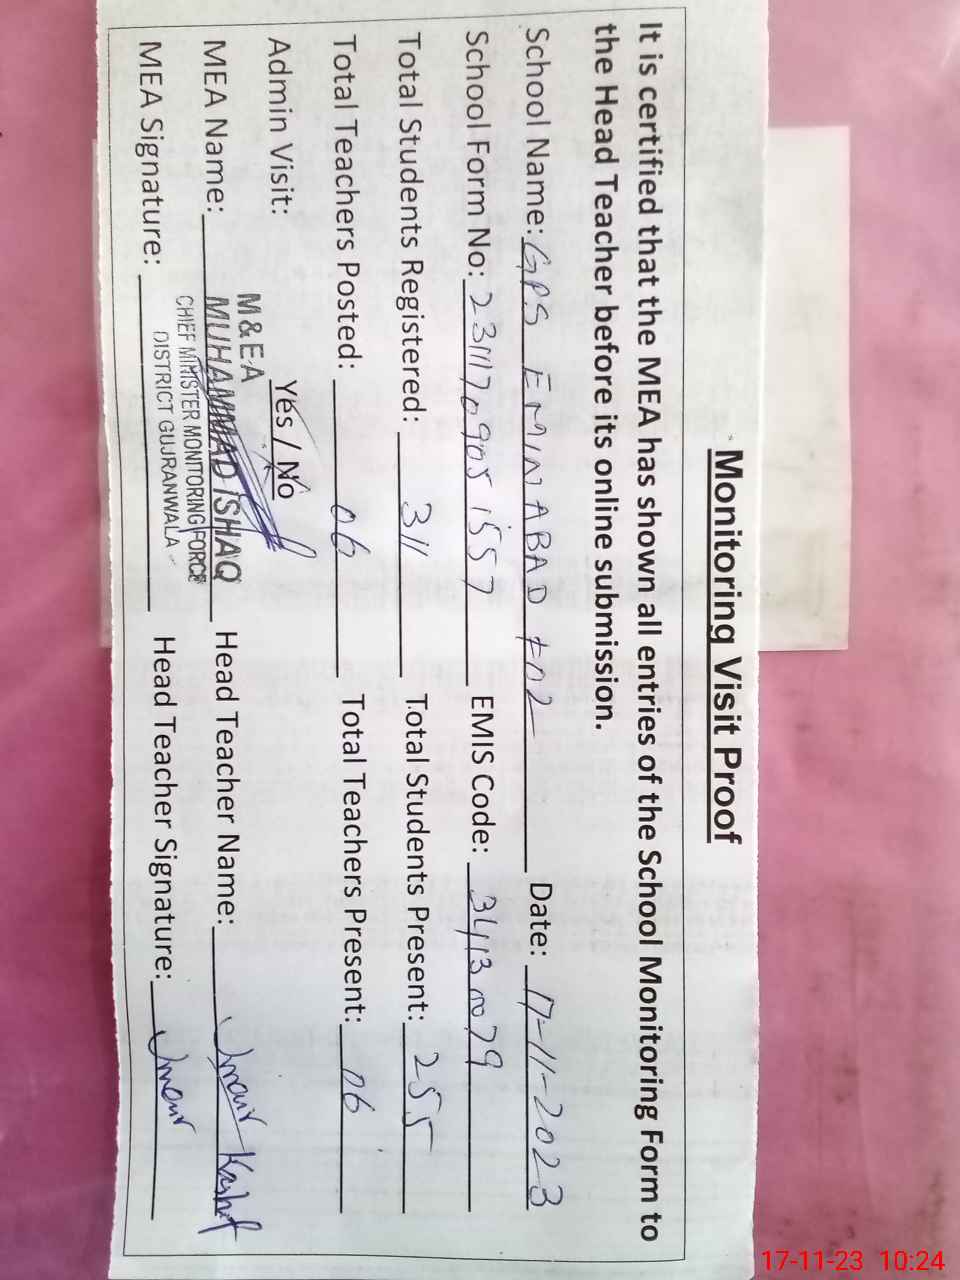 Monitoring Visit Proof
It is certified that the MEA has shown all entries of the School Monitoring Form to
the Head Teacher before its online submission.
School Name: GPS EMINABAD # 02 Date: 17-11-2023
School Form No: EMIS Code: 34130079
Total Students Registered: 311 Total Students Present: 255
Total Teachers Posted: 06 Total Teachers Present: 06
Admin Visit: Yes / No
M & E A
MEA Name: MUHAMMAD ISHAQ Head Teacher Name: Umair Kashif
CHIEF MINISTER MONITORING FORCE
DISTRICT GUJRANWALA
MEA Signature: Head Teacher Signature: Umair
17-11-23 10:24